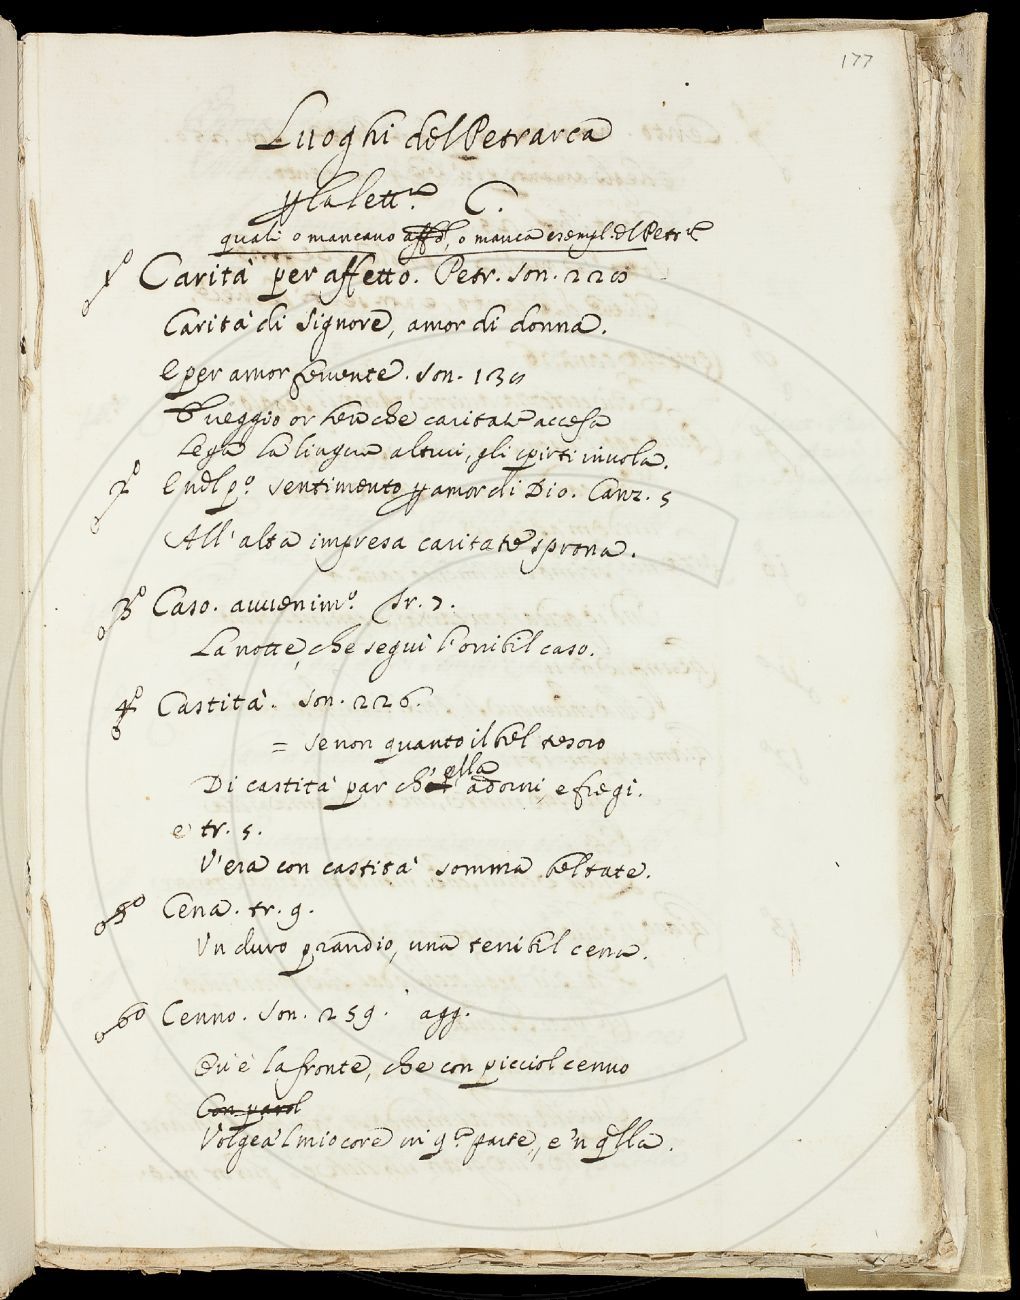 177
Luoghi del Petrarca
p la lettra C.
quali o mancano o manca esempl. del Petr.
1º Carità per affetto. Petr. Son. 228
Carità di Signore, amor di donna.
E per amor fervente. Son. 138
veggio or ben che caritate accesa
Lega la lingua altrui, gli spirti invola.
2º E nel pº. sentimento p amor di Dio. Canz. 5
All'alta impresa caritate sprona.
3º Caso. avvenimº. tr. 7.
La notte, che seguì l'orribil caso.
4º Castità. Son. 226.
= se non quanto il bel tesoro
Di castità par ch'ella adorni, e fregi.
e tr. 5.
V'era con castità somma beltate.
5º Cena. tr. 9.
Un duro prandio, una terribil cena.
6º Cenno. Son. 259. agg.
Ov'è la fronte, che con picciol cenno
Con parol
Volgea 'l mio core in qª. parte, e 'n qlla.